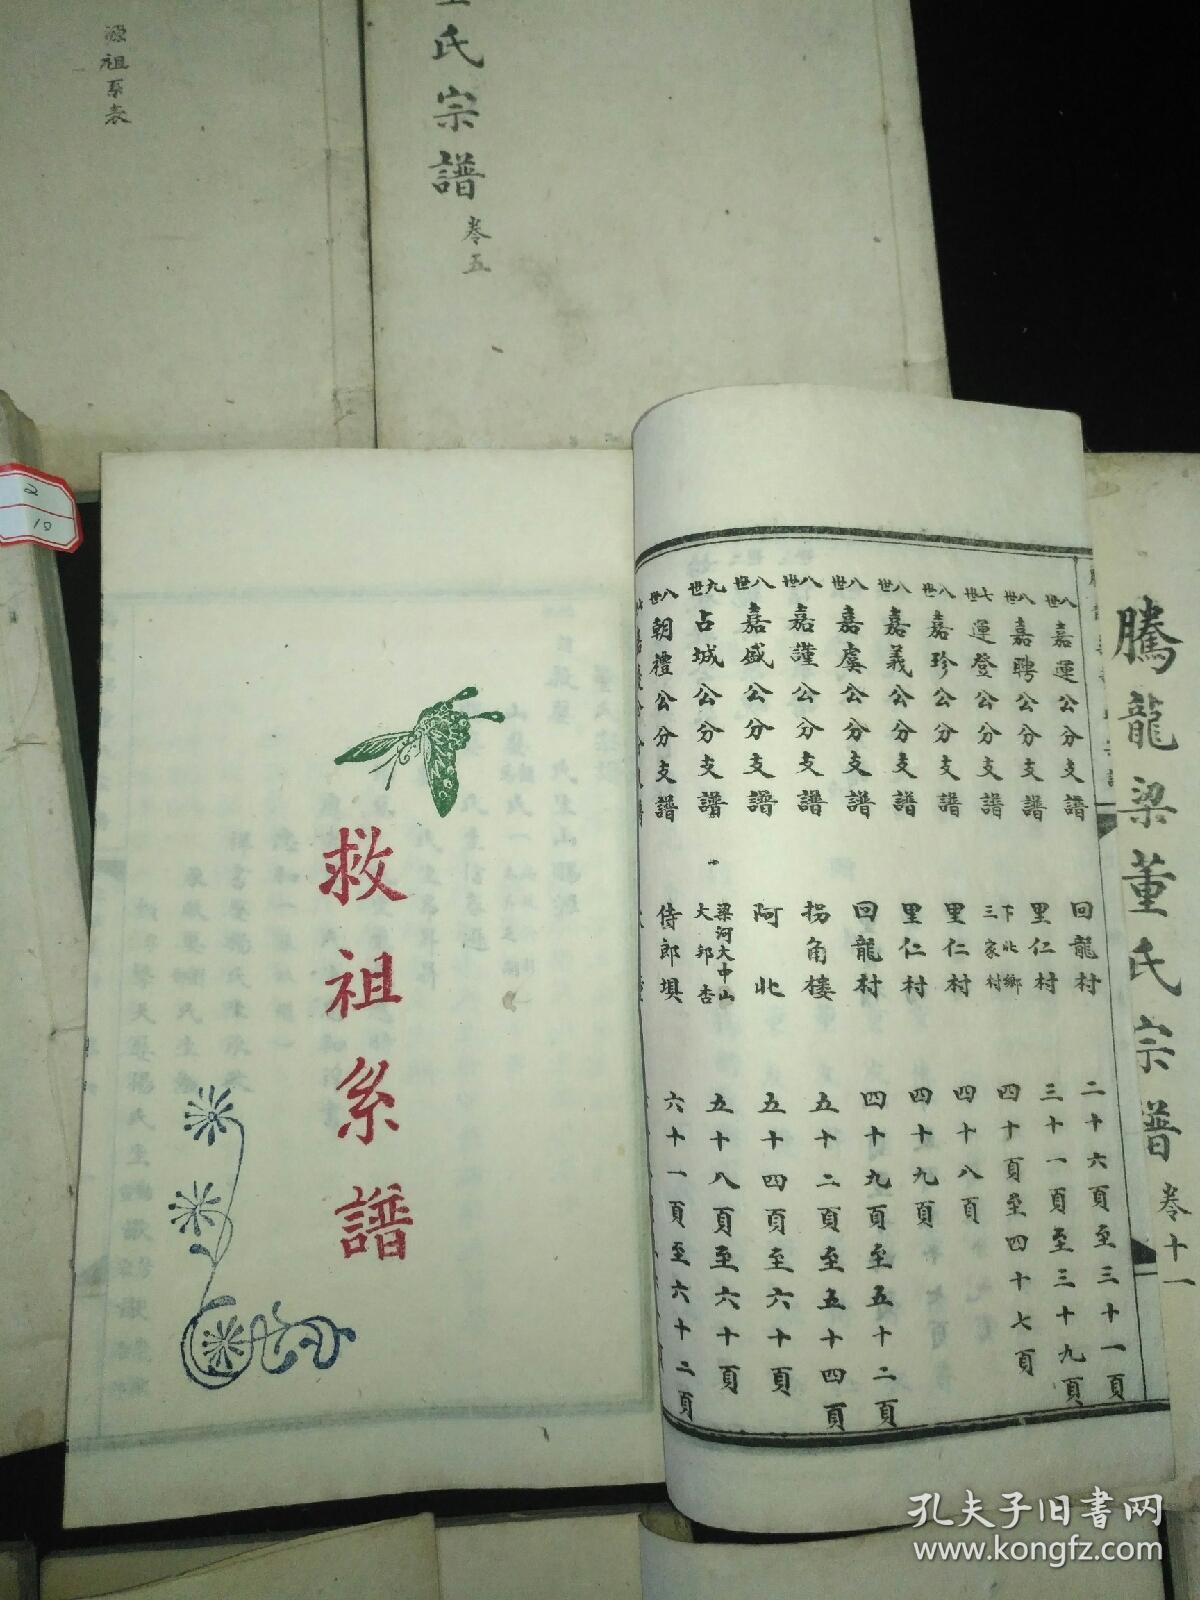 源祖系表
氏宗譜
卷五
2
10
騰龍梁董氏宗譜
卷十一
八世嘉運公分支譜 回龍村 二十六頁至三十一頁
八世嘉聘公分支譜 里仁村 三十一頁至三十九頁
七世運登公分支譜 下北鄉三家村 四十頁至四十七頁
八世嘉珍公分支譜 里仁村 四十八頁
八世嘉義公分支譜 里仁村 四十九頁
八世嘉虞公分支譜 回龍村 四十九頁至五十二頁
八世嘉謹公分支譜 拐角樓 五十二頁至五十四頁
八世嘉盛公分支譜 阿北 五十四頁至六十頁
九世占城公分支譜 梁河大中山大邦杏 五十八頁至六十頁
八世朝禮公分支譜 侍郎垻 六十一頁至六十二頁
救祖系譜
孔夫子旧书网
www.kongfz.com